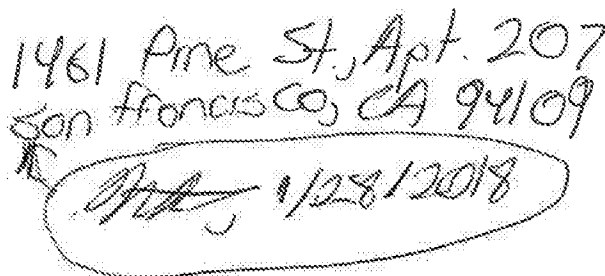 1461 Pine St., Apt. 207
San Francisco, CA 94109
1/28/2018